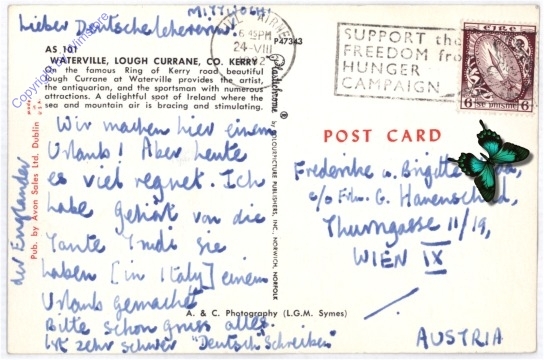 Lieber Deutschelehererin
MITTWOCH
6 45PM
24-VIII
P47343
SUPPORT the
FREEDOM from
HUNGER
CAMPAIGN
ÉIRE
6
6
AS 101
WATERVILLE, LOUGH CURRANE, CO. KERRY
On the famous Ring of Kerry road beautiful
lough Currane at Waterville provides the artist,
the antiquarian, and the sportsman with numerous
attractions. A delightful spot of Ireland where the
sea and mountain air is bracing and stimulating.
Plastichrome ®
by COLOURPICTURE PUBLISHERS, INC., NORWICH, NORFOLK
Pub. by Avon Sales Ltd. Dublin
U.S.A.
Wir machen hier einem
Urlaub! Aber heute
es viel regnet. Ich
habe gehört von die
Tante Trudi sie
haben [in Italy] einem
Urlaub gemacht
Bitte schon gruss alles.
ist zehr schwer "Deutsch Schreiben"
der Englander
POST CARD
Frederike u. Brigitte
c/o Frau G. Havenschild,
Thurngasse 11/19,
WIEN IX
AUSTRIA
A. & C. Photography (L.G.M. Symes)